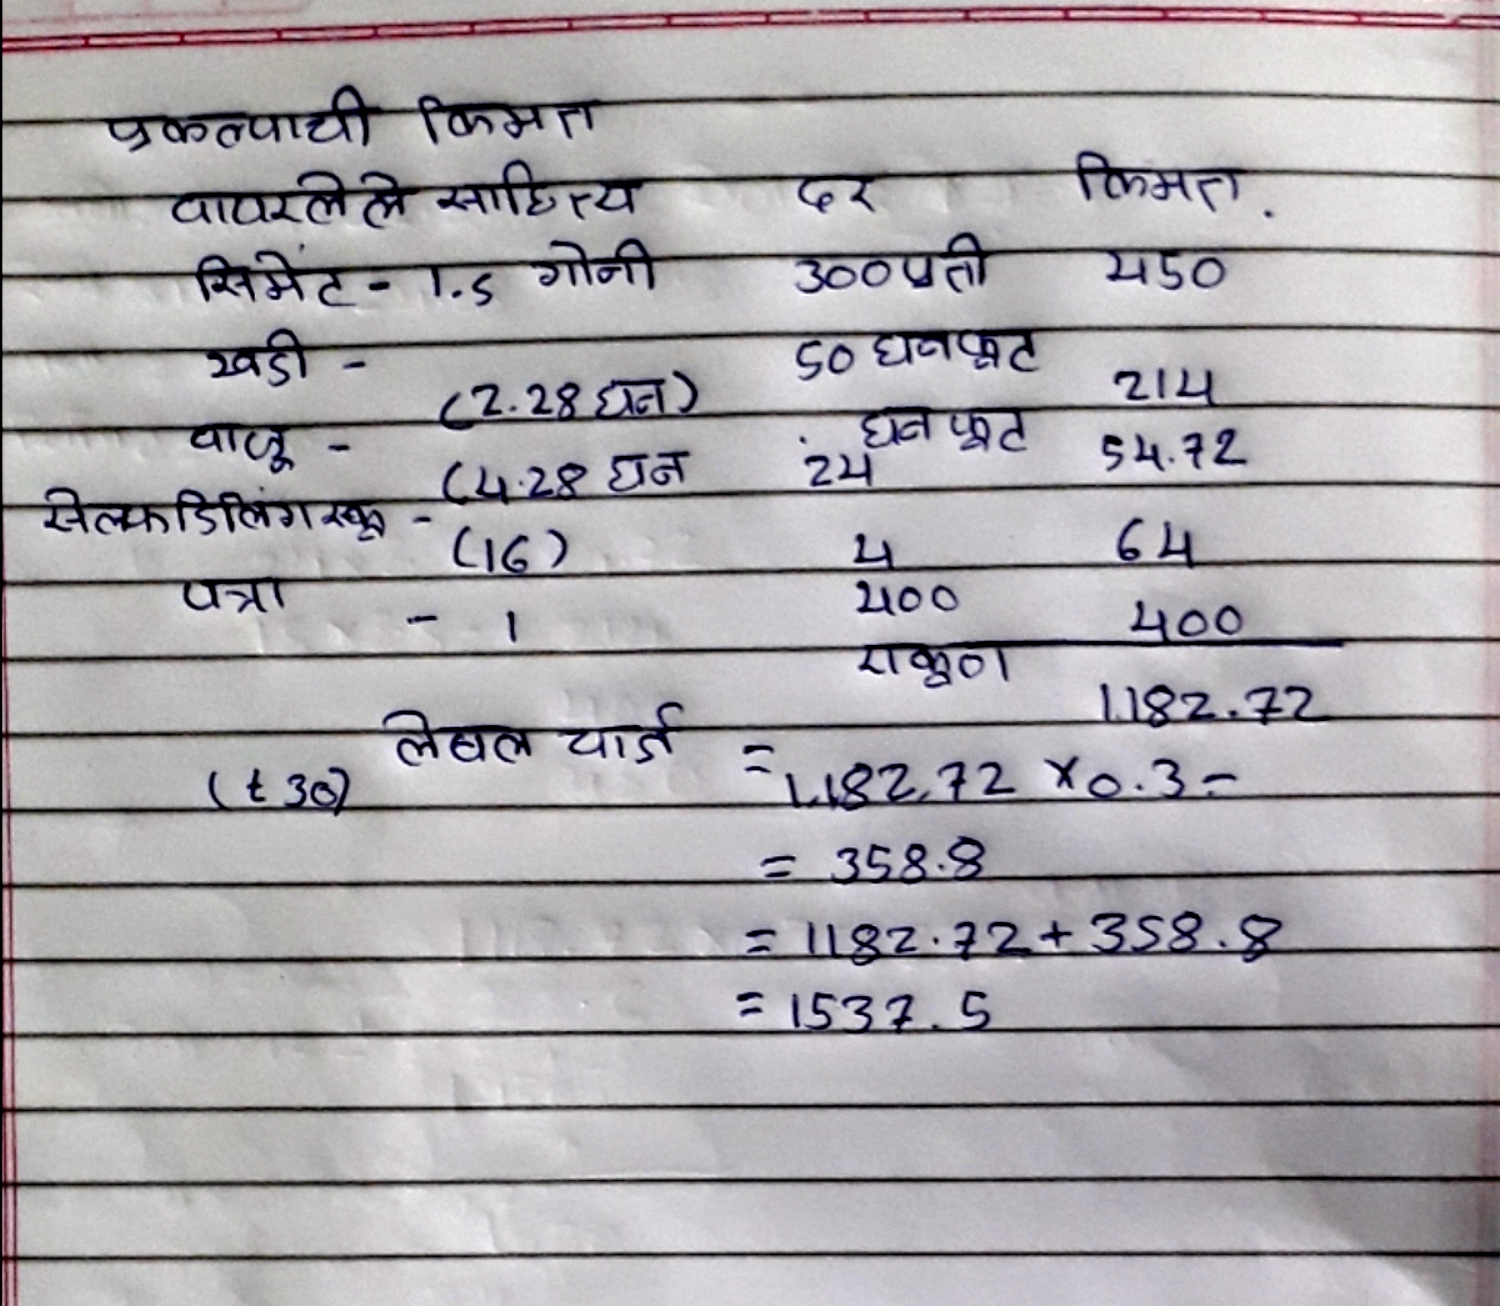 प्रकल्पाची किंमत
वापरलेले साहित्य दर किंमत.
सिमेंट - 1.5 गोनी 300 प्रती 450
खडी - (2.28 घन) 50 घनफूट 214
वाळू - (4.28 घन 24 घनफूट 54.72
सेल्फ डिलिंग स्क्रू - (16) 4 64
पत्रा - 1 400 400
एकूण 1182.72
लेबल चार्ज = 1182.72 x 0.3 -
= 358.8
= 1182.72 + 358.8
= 1537.5